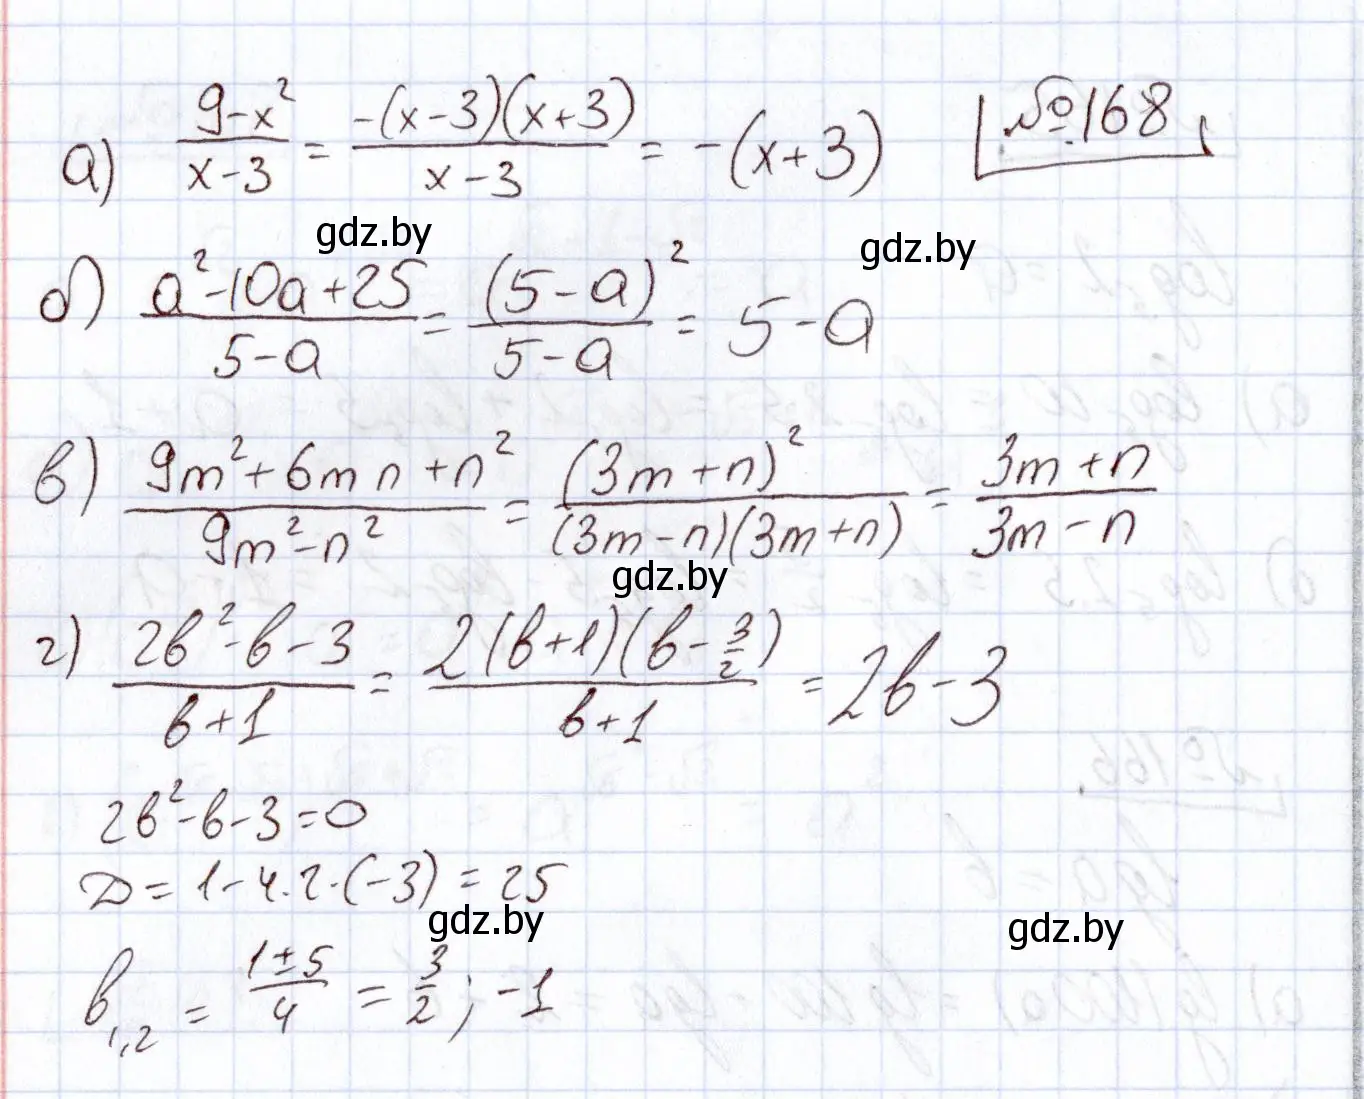 №168
а) \frac{9-x^2}{x-3} = \frac{-(x-3)(x+3)}{x-3} = -(x+3)
gdz.by
gdz.by
б) \frac{a^2-10a+25}{5-a} = \frac{(5-a)^2}{5-a} = 5-a
в) \frac{9m^2+6mn+n^2}{9m^2-n^2} = \frac{(3m+n)^2}{(3m-n)(3m+n)} = \frac{3m+n}{3m-n}
gdz.by
г) \frac{2b^2-b-3}{b+1} = \frac{2(b+1)(b-\frac{3}{2})}{b+1} = 2b-3
2b^2-b-3=0
D=1-4·2·(-3)=25
gdz.by
gdz.by
b_{1,2} = \frac{1±5}{4} = \frac{3}{2}; -1